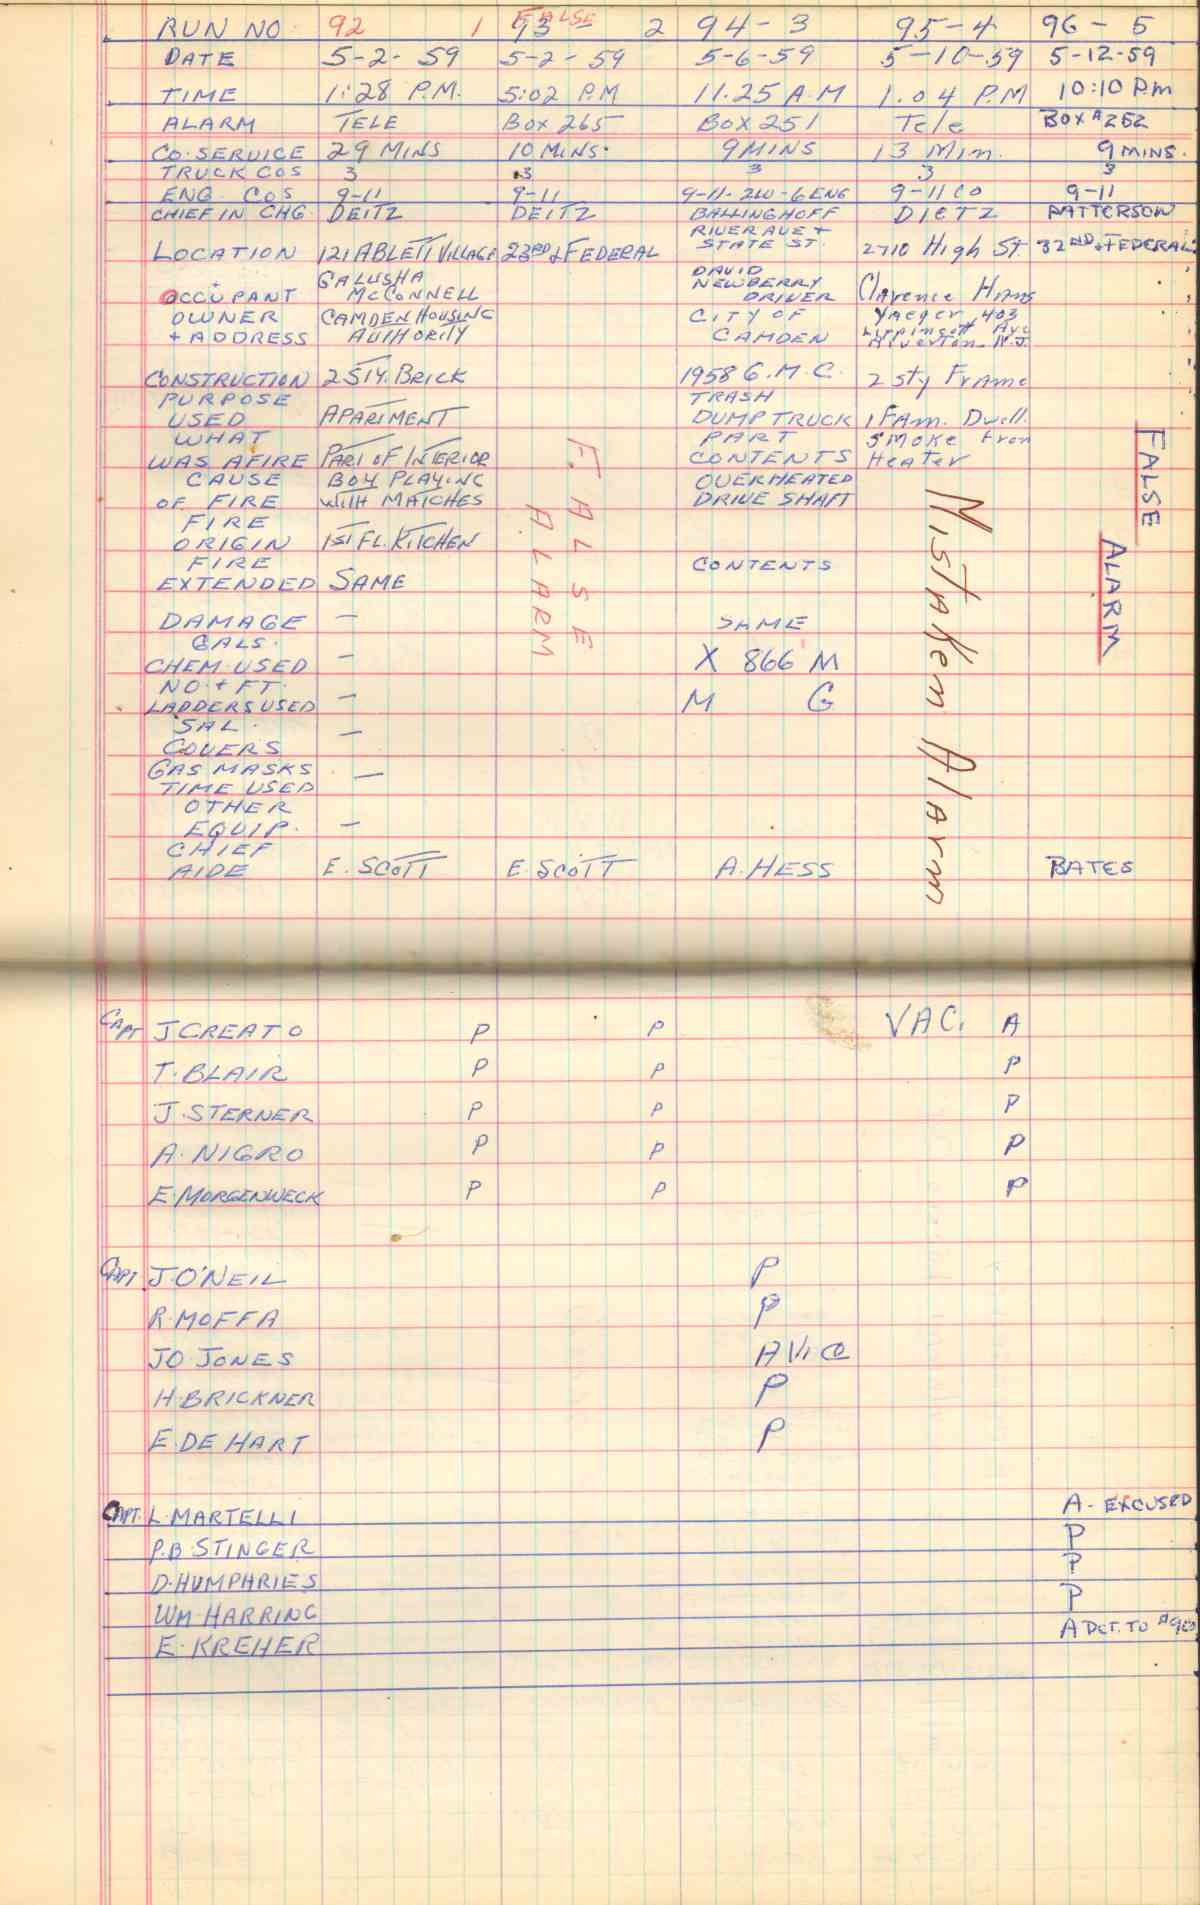 RUN NO. 92 1 FALSE 93 2 94 - 3 95 - 4 96 - 5
DATE 5-2-59 5-2-59 5-6-59 5-10-59 5-12-59
TIME 1:28 P.M. 5:02 P.M 11.25 A.M 1.04 P.M 10:10 Pm
ALARM TELE BOX 265 BOX 251 Tele BOX # 252
CO. SERVICE 29 MINS 10 MINS. 9 MINS 13 Min. 9 MINS.
TRUCK COS 3 3 3 3 3
ENG. COS 9-11 9-11 9-11-2W-6 ENG 9-11 CO 9-11
CHIEF IN CHG. DEITZ DEITZ BALLINGHOFF DIETZ PATTERSON
LOCATION 121 ABLETT VILLAGE 23RD & FEDERAL RIVER AVE + STATE ST. 2710 High St. 32ND & FEDERAL
OCCUPANT GALUSHA McCONNELL DAVID NEWBERRY DRIVER Clarence Hims
+ OWNER + ADDRESS CAMDEN HOUSING AUTHORITY CITY OF CAMDEN Yaeger 403 Lippincott Ave Riverton N.J.
CONSTRUCTION 2 STY. BRICK 1958 G.M.C. 2 sty Frame
PURPOSE USED APARTMENT TRASH DUMP TRUCK 1 FAm. Dwell.
WHAT WAS AFIRE PART OF INTERIOR PART CONTENTS Smoke from Heater
CAUSE OF FIRE BOY PLAYING WITH MATCHES OVERHEATED DRIVE SHAFT
FIRE ORIGIN 1ST FL. KITCHEN
FIRE EXTENDED SAME CONTENTS
FALSE ALARM
Mistaken Alarm
FALSE ALARM
DAMAGE — SAME
GALS. CHEM. USED — X 866 M
NO. + FT. LADDERS USED — M G
SAL. COVERS —
GAS MASKS TIME USED —
OTHER EQUIP. —
CHIEF AIDE E. SCOTT E. SCOTT A. HESS BATES
CAPT J CREATO P P VAC. A
T. BLAIR P P P
J. STERNER P P P
A. NIGRO P P P
E. MORGENWECK P P P
CAPT. J. O'NEIL P
R. MOFFA P
JO. JONES A
H. BRICKNER P
E. DE HART P
CAPT. L. MARTELLI A - EXCUSED
P.B. STINGER P
D. HUMPHRIES P
WM. HARRING P
E. KREHER A DET. TO #9